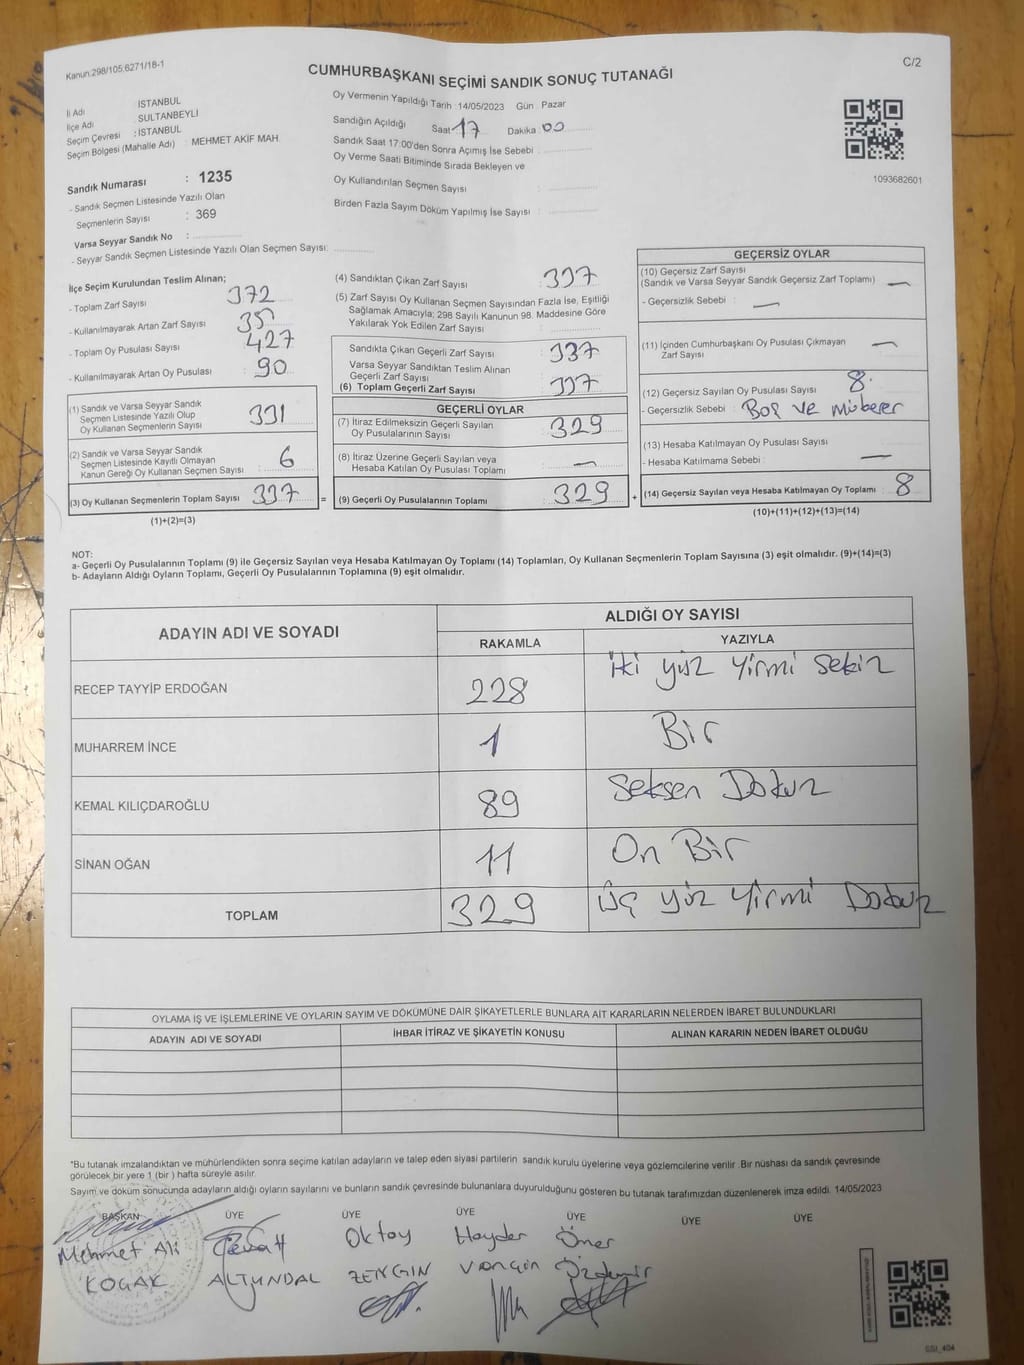 Kanun:298/105:6271/18-1
CUMHURBAŞKANI SEÇİMİ SANDIK SONUÇ TUTANAĞI
C/2
İl Adı İSTANBUL
İlçe Adı : SULTANBEYLİ
Seçim Çevresi : İSTANBUL
Seçim Bölgesi (Mahalle Adı) : MEHMET AKİF MAH
Oy Vermenin Yapıldığı Tarih :14/05/2023 Gün : Pazar
Sandığın Açıldığı Saat 17 Dakika 00
Sandık Saat 17:00'den Sonra Açımış İse Sebebi :
Oy Verme Saati Bitiminde Sırada Bekleyen ve
Oy Kullandırılan Seçmen Sayısı :
Birden Fazla Sayım Döküm Yapılmış İse Sayısı :
1093682601
Sandık Numarası : 1235
- Sandık Seçmen Listesinde Yazılı Olan
Seçmenlerin Sayısı : 369
Varsa Seyyar Sandık No :
- Seyyar Sandık Seçmen Listesinde Yazılı Olan Seçmen Sayısı:
İlçe Seçim Kurulundan Teslim Alınan;
- Toplam Zarf Sayısı 372
- Kullanılmayarak Artan Zarf Sayısı
- Toplam Oy Pusulası Sayısı : 427
- Kullanılmayarak Artan Oy Pusulası : 90
(1) Sandık ve Varsa Seyyar Sandık
Seçmen Listesinde Yazılı Olup
Oy Kullanan Seçmenlerin Sayısı : 331
(2) Sandık ve Varsa Seyyar Sandık
Seçmen Listesinde Kayıtlı Olmayan
Kanun Gereği Oy Kullanan Seçmen Sayısı : 6
(3) Oy Kullanan Seçmenlerin Toplam Sayısı : 337 =
(1)+(2)=(3)
(4) Sandıktan Çıkan Zarf Sayısı : 337
(5) Zarf Sayısı Oy Kullanan Seçmen Sayısından Fazla İse, Eşitliği
Sağlamak Amacıyla; 298 Sayılı Kanunun 98. Maddesine Göre
Yakılarak Yok Edilen Zarf Sayısı :
Sandıkta Çıkan Geçerli Zarf Sayısı : 337
Varsa Seyyar Sandıktan Teslim Alınan
Geçerli Zarf Sayısı
(6) Toplam Geçerli Zarf Sayısı : 337
GEÇERLİ OYLAR
(7) İtiraz Edilmeksizin Geçerli Sayılan
Oy Pusulalarının Sayısı : 329
(8) İtiraz Üzerine Geçerli Sayılan veya
Hesaba Katılan Oy Pusulası Toplamı : —
(9) Geçerli Oy Pusulalarının Toplamı : 329 +
GEÇERSİZ OYLAR
(10) Geçersiz Zarf Sayısı
(Sandık ve Varsa Seyyar Sandık Geçersiz Zarf Toplamı) : —
- Geçersizlik Sebebi : —
(11) İçinden Cumhurbaşkanı Oy Pusulası Çıkmayan
Zarf Sayısı : —
(12) Geçersiz Sayılan Oy Pusulası Sayısı : 8
- Geçersizlik Sebebi : Boş ve Müberer
(13) Hesaba Katılmayan Oy Pusulası Sayısı :
- Hesaba Katılmama Sebebi : —
(14) Geçersiz Sayılan veya Hesaba Katılmayan Oy Toplamı : 8
(10)+(11)+(12)+(13)=(14)
NOT:
a- Geçerli Oy Pusulalarının Toplamı (9) ile Geçersiz Sayılan veya Hesaba Katılmayan Oy Toplamı (14) Toplamları, Oy Kullanan Seçmenlerin Toplam Sayısına (3) eşit olmalıdır. (9)+(14)=(3)
b- Adayların Aldığı Oyların Toplamı, Geçerli Oy Pusulalarının Toplamına (9) eşit olmalıdır.
ADAYIN ADI VE SOYADI
ALDIĞI OY SAYISI
RAKAMLA YAZIYLA
RECEP TAYYİP ERDOĞAN 228 iki yüz yirmi sekiz
MUHARREM İNCE 1 Bir
KEMAL KILIÇDAROĞLU 89 Seksen Dokuz
SİNAN OĞAN 11 On Bir
TOPLAM 329 üç yüz yirmi Dokuz
OYLAMA İŞ VE İŞLEMLERİNE VE OYLARIN SAYIM VE DÖKÜMÜNE DAİR ŞİKAYETLERLE BUNLARA AİT KARARLARIN NELERDEN İBARET BULUNDUKLARI
ADAYIN ADI VE SOYADI İHBAR İTİRAZ VE ŞİKAYETİN KONUSU ALINAN KARARIN NEDEN İBARET OLDUĞU
*Bu tutanak imzalandıktan ve mühürlendikten sonra seçime katılan adayların ve talep eden siyasi partilerin sandık kurulu üyelerine veya gözlemcilerine verilir. Bir nüshası da sandık çevresinde
görülecek bir yere 1 (bir ) hafta süreyle asılır.
Sayım ve döküm sonucunda adayların aldığı oyların sayılarını ve bunların sandık çevresinde bulunanlara duyurulduğunu gösteren bu tutanak tarafımızdan düzenlenerek imza edildi. 14/05/2023
BAŞKAN ÜYE ÜYE ÜYE ÜYE ÜYE ÜYE
Mehmet Ali Oktay Haydar Ömer
KOÇAK ALTUNDAL ZENGİN Özdemir
SSI_404